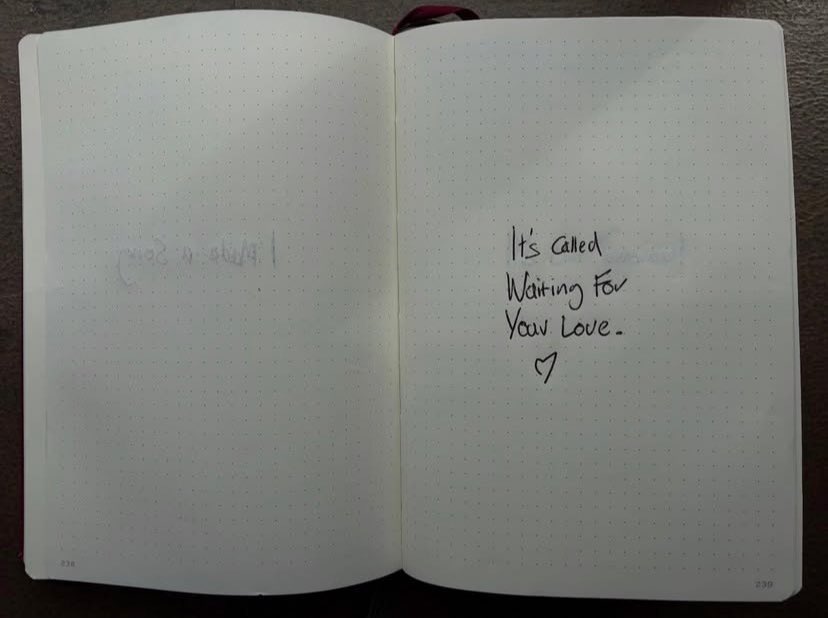 I Made a Song
It's called
Waiting For
Your Love.
238
239